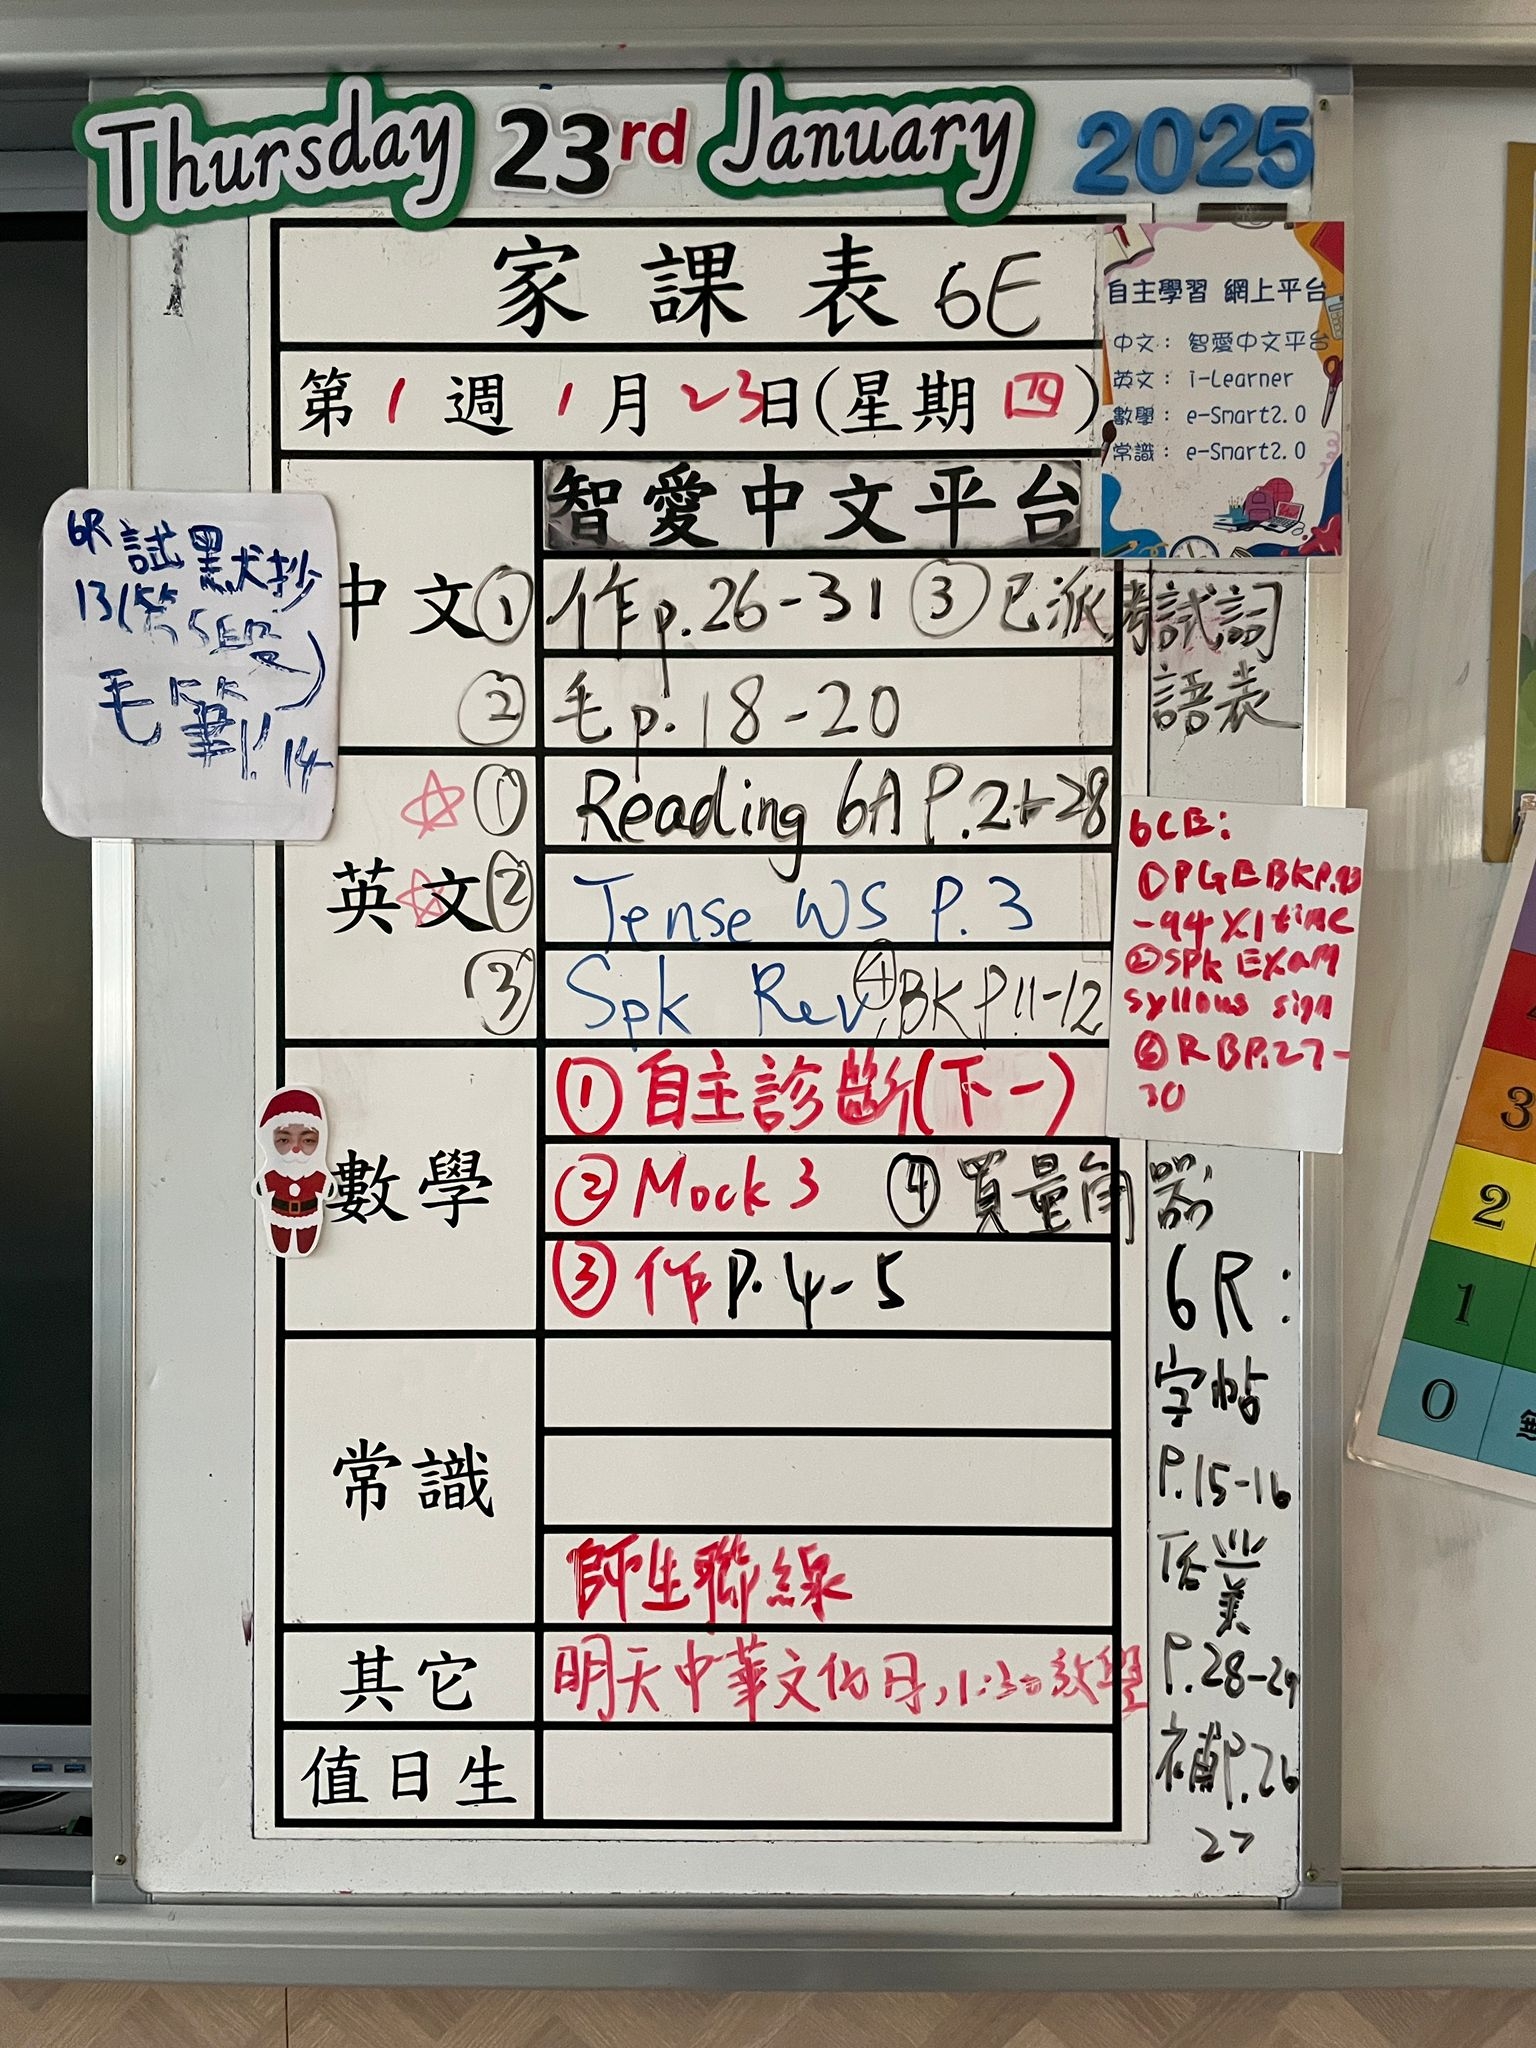 Thursday 23rd January 2025
家課表 6E
第1週1月23日(星期四)
自主學習 網上平台
中文：智愛中文平台
英文：i-Learner
數學：e-Smart2.0
常識：e-Smart2.0
6R 試默抄
13(第5段)
毛筆P.14
中文
智愛中文平台
① 作p.26-31 ③ 已派考試詞語表
② 毛p.18-20
英文
① Reading 6A P.21-28
② Tense WS P.3
③ Spk Rev ④ BK P.11-12
6CE:
① PGEBKP.93
-94 X1 time
② SPK EXAM
syllous sign
③ RBP.27-
30
數學
① 自主診斷(下一)
② Mock 3 ④ 買量角器
③ 作P.4-5
6R:
字帖
P.15-16
P.28-29
補P.26
27
常識
師生聯線
其它
明天中華文化日,1:30放學
值日生
3
2
1
0